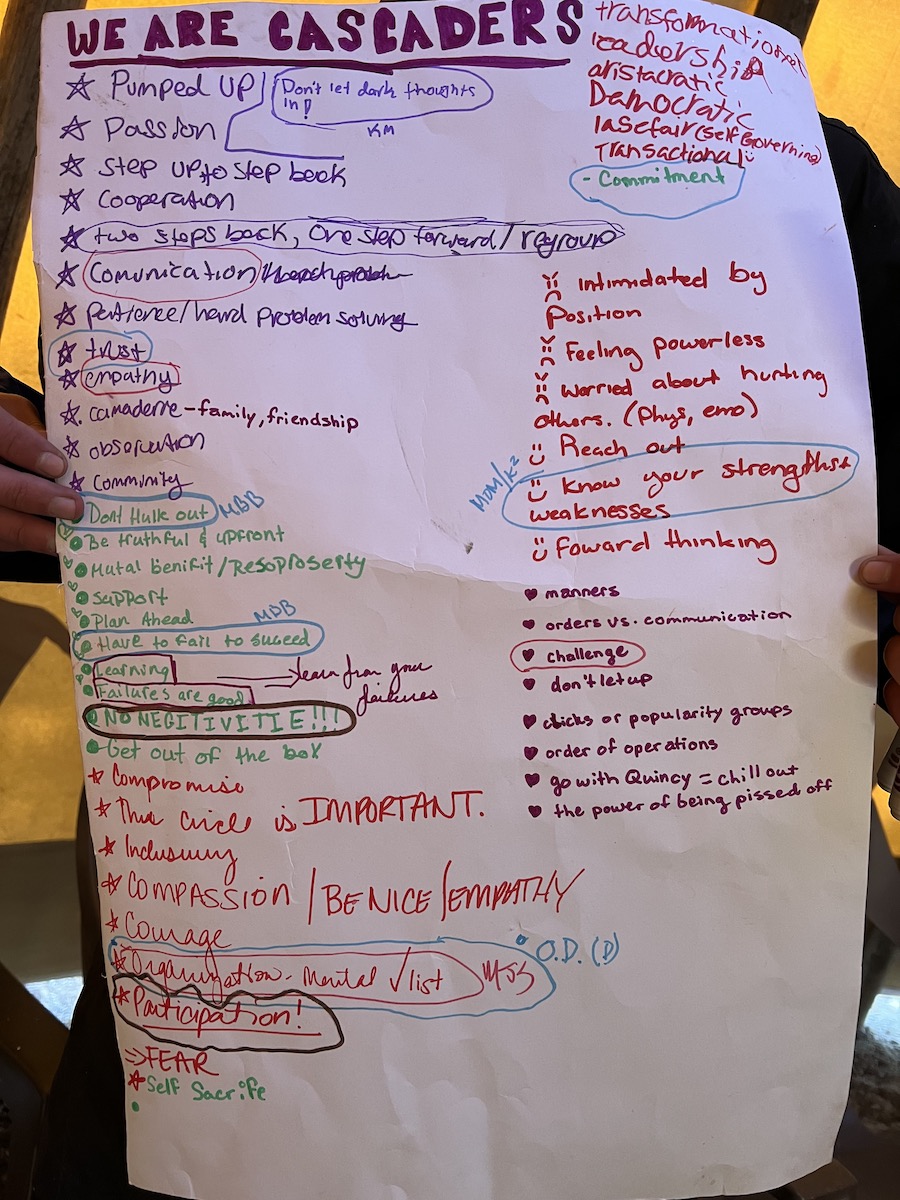 WE ARE CASCADERS
Pumped UP/
Don't let dark thoughts
in!
KM
Passion
Step up to step back
Cooperation
two steps back, one step forward/regroup
Comunication/
Patience/hard Problem solving
trust
empathy
camaderie-family, friendship
observation
Comminity
Dont Hulk out
MBB
Be truthful & upfront
Mutal Benifit/Resoproserty
Support
Plan Ahead
MBB
Have to fail to suceed
Learning
learn from your
failures
Failures are good
NO NEGITIVITIE!!!
Get out of the box
Compromise
This circle is IMPORTANT.
Inclusivity
COMPASSION/BE NICE/EMPATHY
Courage
Organization- Mental √ list
O.D. (D)
Participation!
=> FEAR
Self Sacrife
transformational
leadership
aristacratic
Damocratic
lasefair (self governing)
Transactional
- Commitment
Intimidated by
Position
Feeling powerless
Worried about hurting
others. (Phys, emo)
Reach out
MDM/K²
Know your strengths+
weaknesses
Foward thinking
manners
orders vs. communication
challenge
don't let up
clicks or popularity groups
order of operations
go with Quincy = chill out
the power of being pissed off